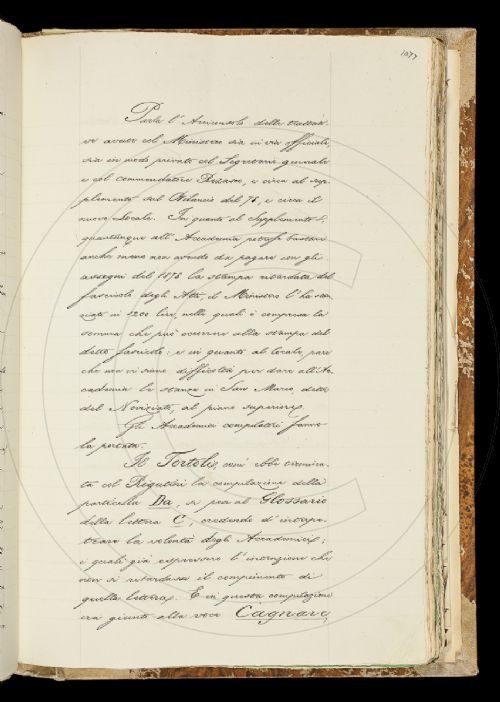 1077
Parla l'Arciconsolo delle trattati-
ve avute col Ministero sia in via officiale
sia in modo privato col Segretario generale
e col commendatore Rezasco, e circa al sup-
plemento sul Bilancio del 78, e circa il
nuovo Locale. In quanto al Supplemento,
quantunque all'Accademia potesse bastare
anche meno non avendo da pagare con gli
assegni del 1878 la stampa ritardata del
fascicolo degli Atti, il Ministero l'ha
in 1200 lire, nelle quali è compresa la
somma che può occorrere alla stampa del
detto fascicolo: e in quanto al locale, pare
che non vi siano difficoltà per dare all'Ac-
cademia le stanze in San Marco, dette
del Noviziato, al piano superiore.
Gli Accademici compilatori fanno
la portata.
Il Tortoli, com' ebbe termina-
ta col Rigutini la compilazione della
particella Da, si pose al Glossario
della lettera C, credendo d'interpe-
trare la volontà degli Accademici;
i quali già espressero l'intenzione che
non si ritardasse il compimento di
quella lettera. E in questa compilazione
era giunto alla voce Cagnare,